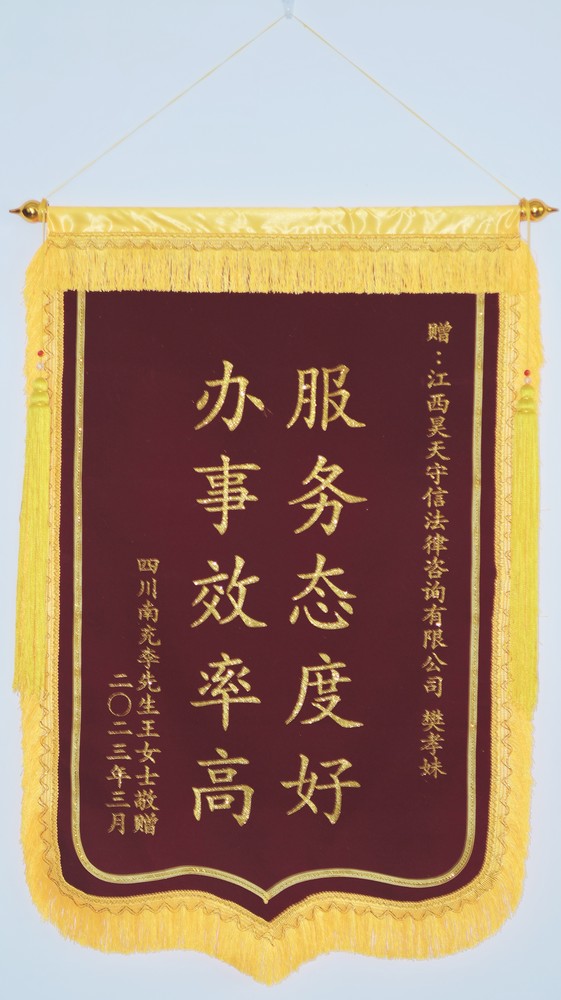 赠：江西昊天守信法律咨询有限公司 樊孝妹
服务态度好
办事效率高
四川南充李先生王女士敬赠
二〇二三年三月